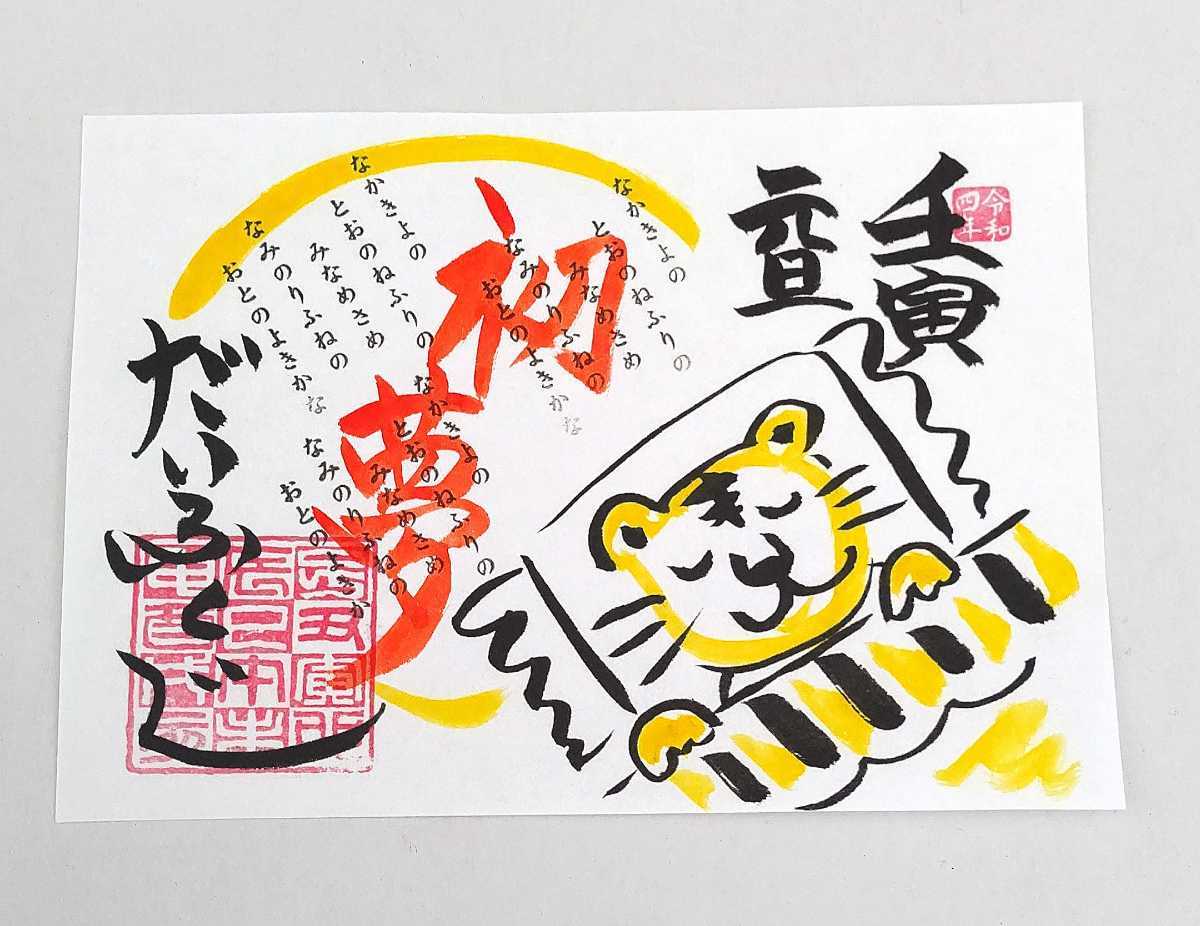 壬寅
令和
四年
元旦
初夢
なかきよの
とおのねふりの
みなめさめ
なみのりふねの
おとのよきかな
なかきよの
とおのねふりの
みなめさめ
なみのりふねの
おとのよきかな
なかきよの
とおのねふりの
みなめさめ
なみのりふねの
おとのよきか
だいふくじ